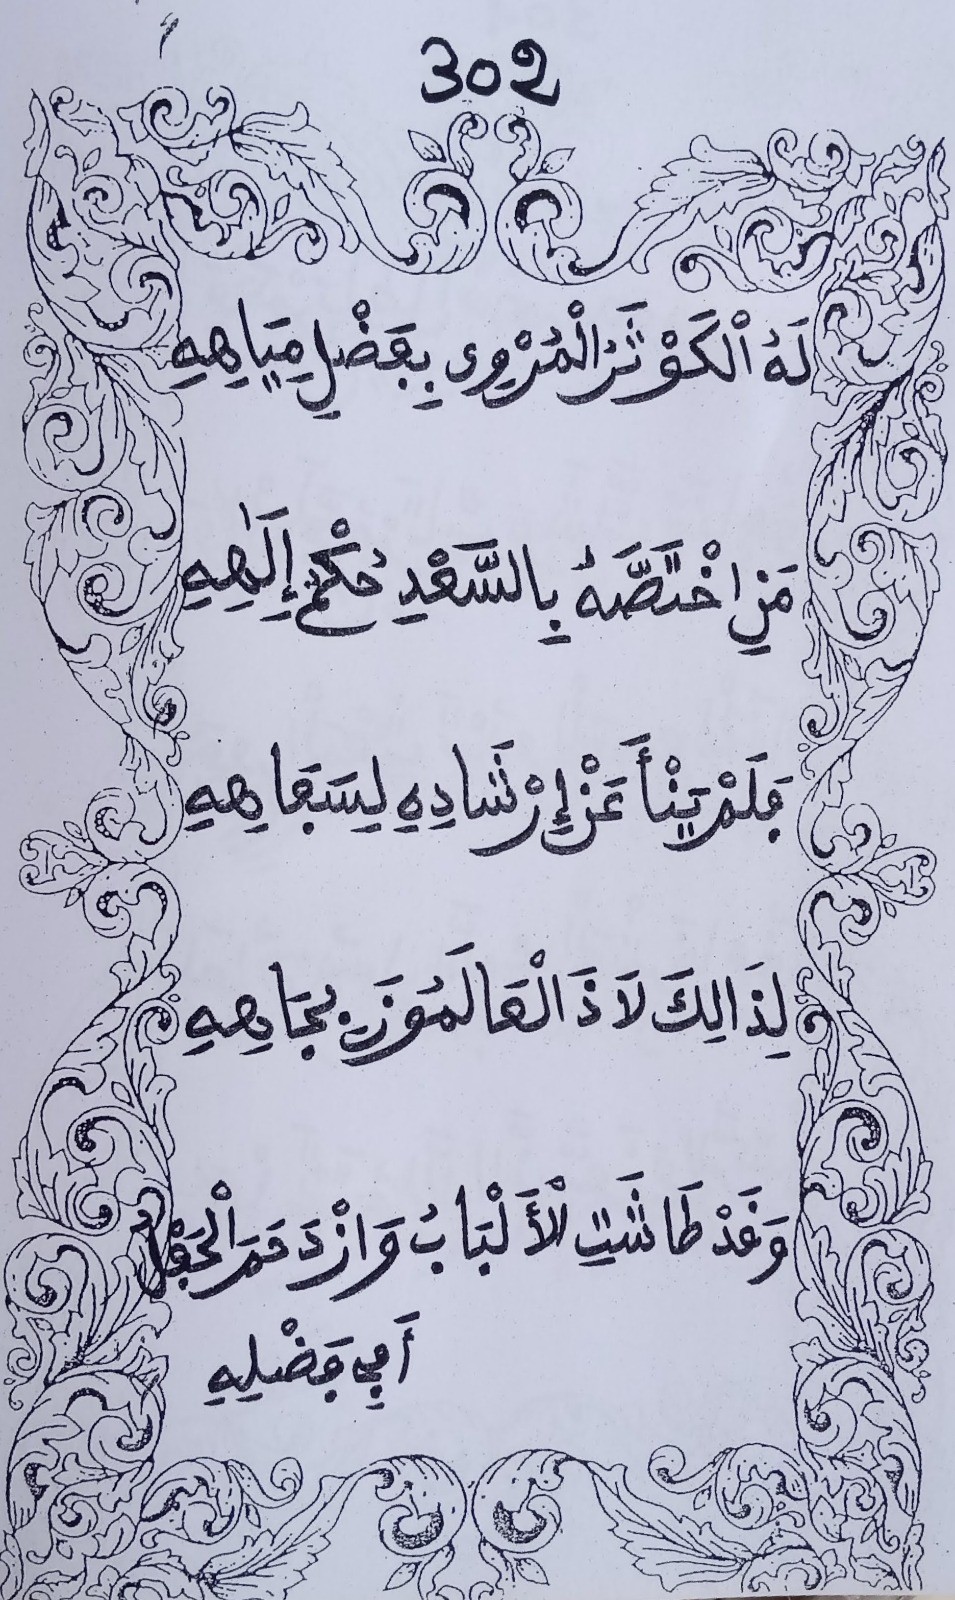 302
لَهُ الْكَوْثَرُ الْمُرْوِى بِفَضْلِ مِيَاهِهِ
مَنِ اخْتَصَّهُ بِالسَّعْدِ حُكْمُ إِلَٰهِهِ
فَلَمْ يَنْأَ عَنْ إِرْشَادِهِ لِسَفَاهِهِ
لِذَالِكَ لَاذَ الْعَالَمُونَ بِجَاهِهِ
وَقَدْ طَاشَتِ الْأَلْبَابُ وَازْدَحَمَ الْحَفْلُ
أَيْ فَضْلِهِ